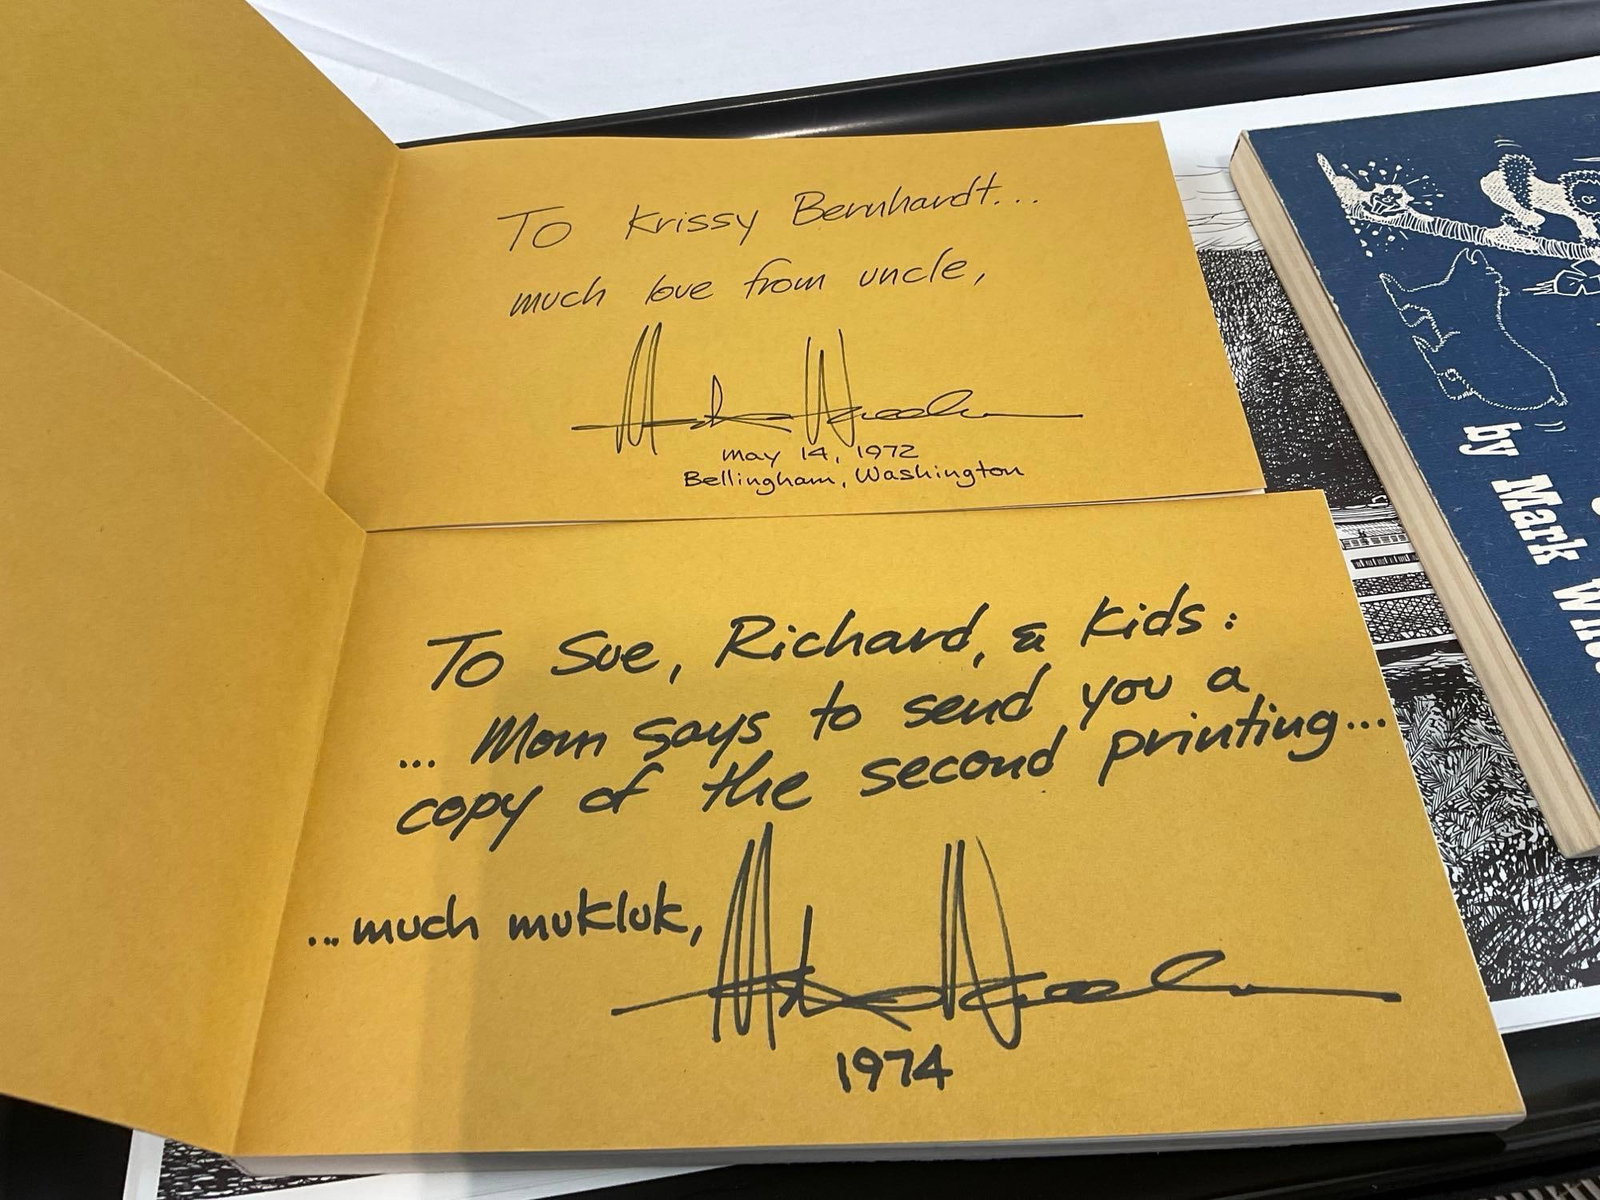 To Krissy Bernhardt...
much love from uncle,
may 14, 1972
Bellingham, Washington
To Sue, Richard, & Kids:
... Mom says to send you a
copy of the second printing...
...much mukluk,
1974
by Mark